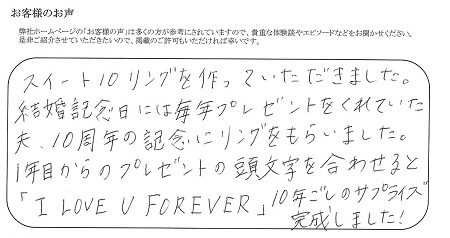 お客様のお声
弊社ホームページの「お客様の声」は多くの方が参考にされていますので、貴重な体験談やエピソードなどをお聞かせください。
是非ご紹介させていただきたいので、掲載のご許可もいただければ幸いです。
スイート10リングを作っていただきました。
結婚記念日には毎年プレゼントをくれていた
夫、10周年の記念にリングをもらいました。
1年目からのプレゼントの頭文字を合わせると
「I LOVE U FOREVER」10年ごしのサプライズ
完成しました!